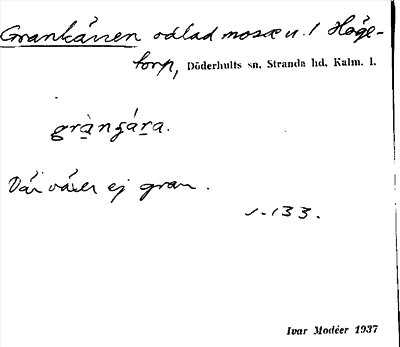 Grankärren odlad mosse u. / Höge-
torp, Döderhults sn, Stranda hd, Kalm. l.
grànʒára.
Där växer ej gran.
1-133.
Ivar Modéer 1937